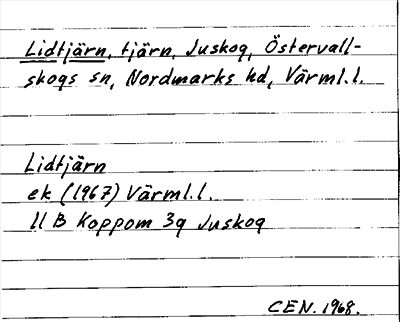 Lidtjärn, tjärn, Juskog, Östervall-
skogs sn, Nordmarks hd, Värml.l.
Lidtjärn
ek (1967) Värml.l.
11 B Koppom 3g Juskog
CEN. 1968.